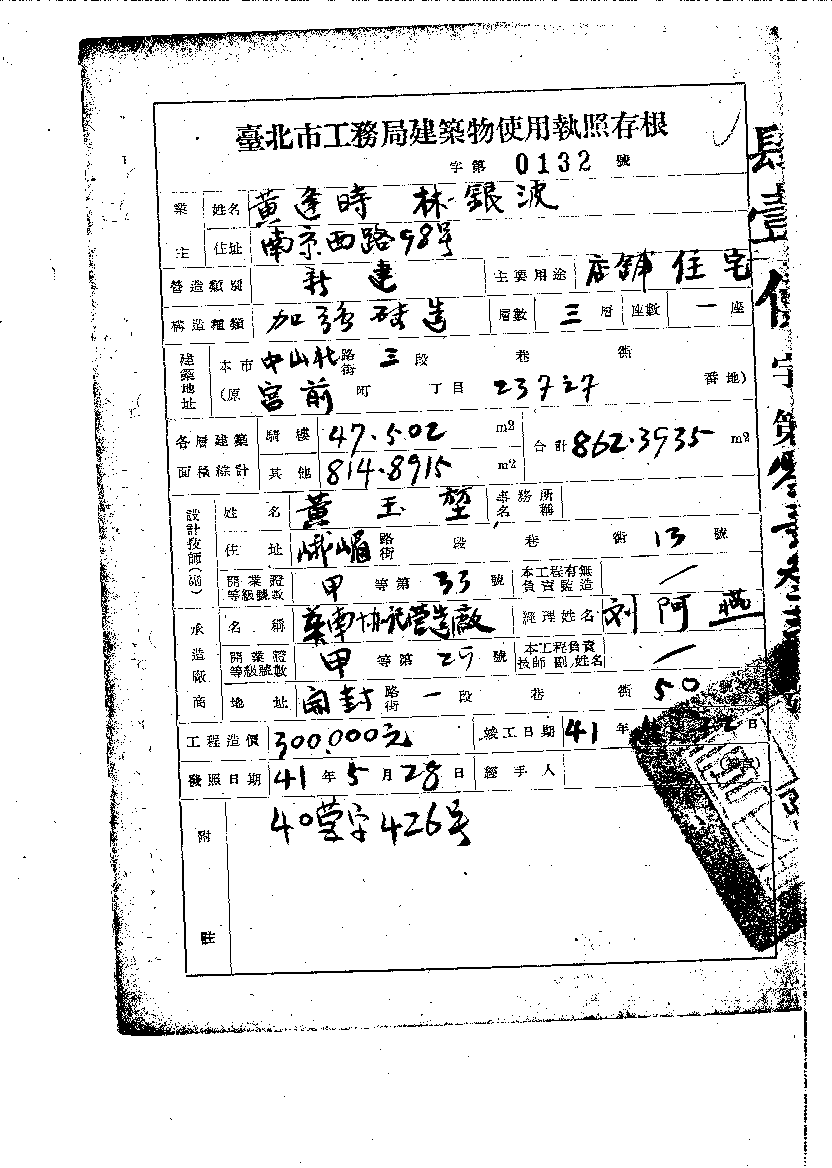 臺北市工務局建築物使用執照存根
字第 0132 號
業主 姓名 黃逢時 林銀波
住址 南京西路98号
營造類別 新建 主要用途 店鋪住宅
構造種類 加強磚造 層數 三層 座數 一座
建築地址 本市 中山北路街 三段 巷 街
(原 宮前町 丁目 23727 番地)
各層建築面積總計 騎樓 47.502 m2 合計 862.3935 m2
其他 814.8915 m2
設計技師(副) 姓名 黃玉堃 事務所名稱
住址 峨嵋路街 段 巷 街 13 號
開業證等級號數 甲等第 33 號 本工程有無負責監造 /
承造廠商 名稱 華南協記營造廠 經理姓名 刘阿燕
開業證等級號數 甲等第 25 號 本工程負責技師副姓名 /
地址 開封路街 一段 巷 街 50 號
工程造價 300,000元 竣工日期 41年 日
發照日期 41年5月28日 經手人
附註 40營字426号
肆壹使字第零壹叁